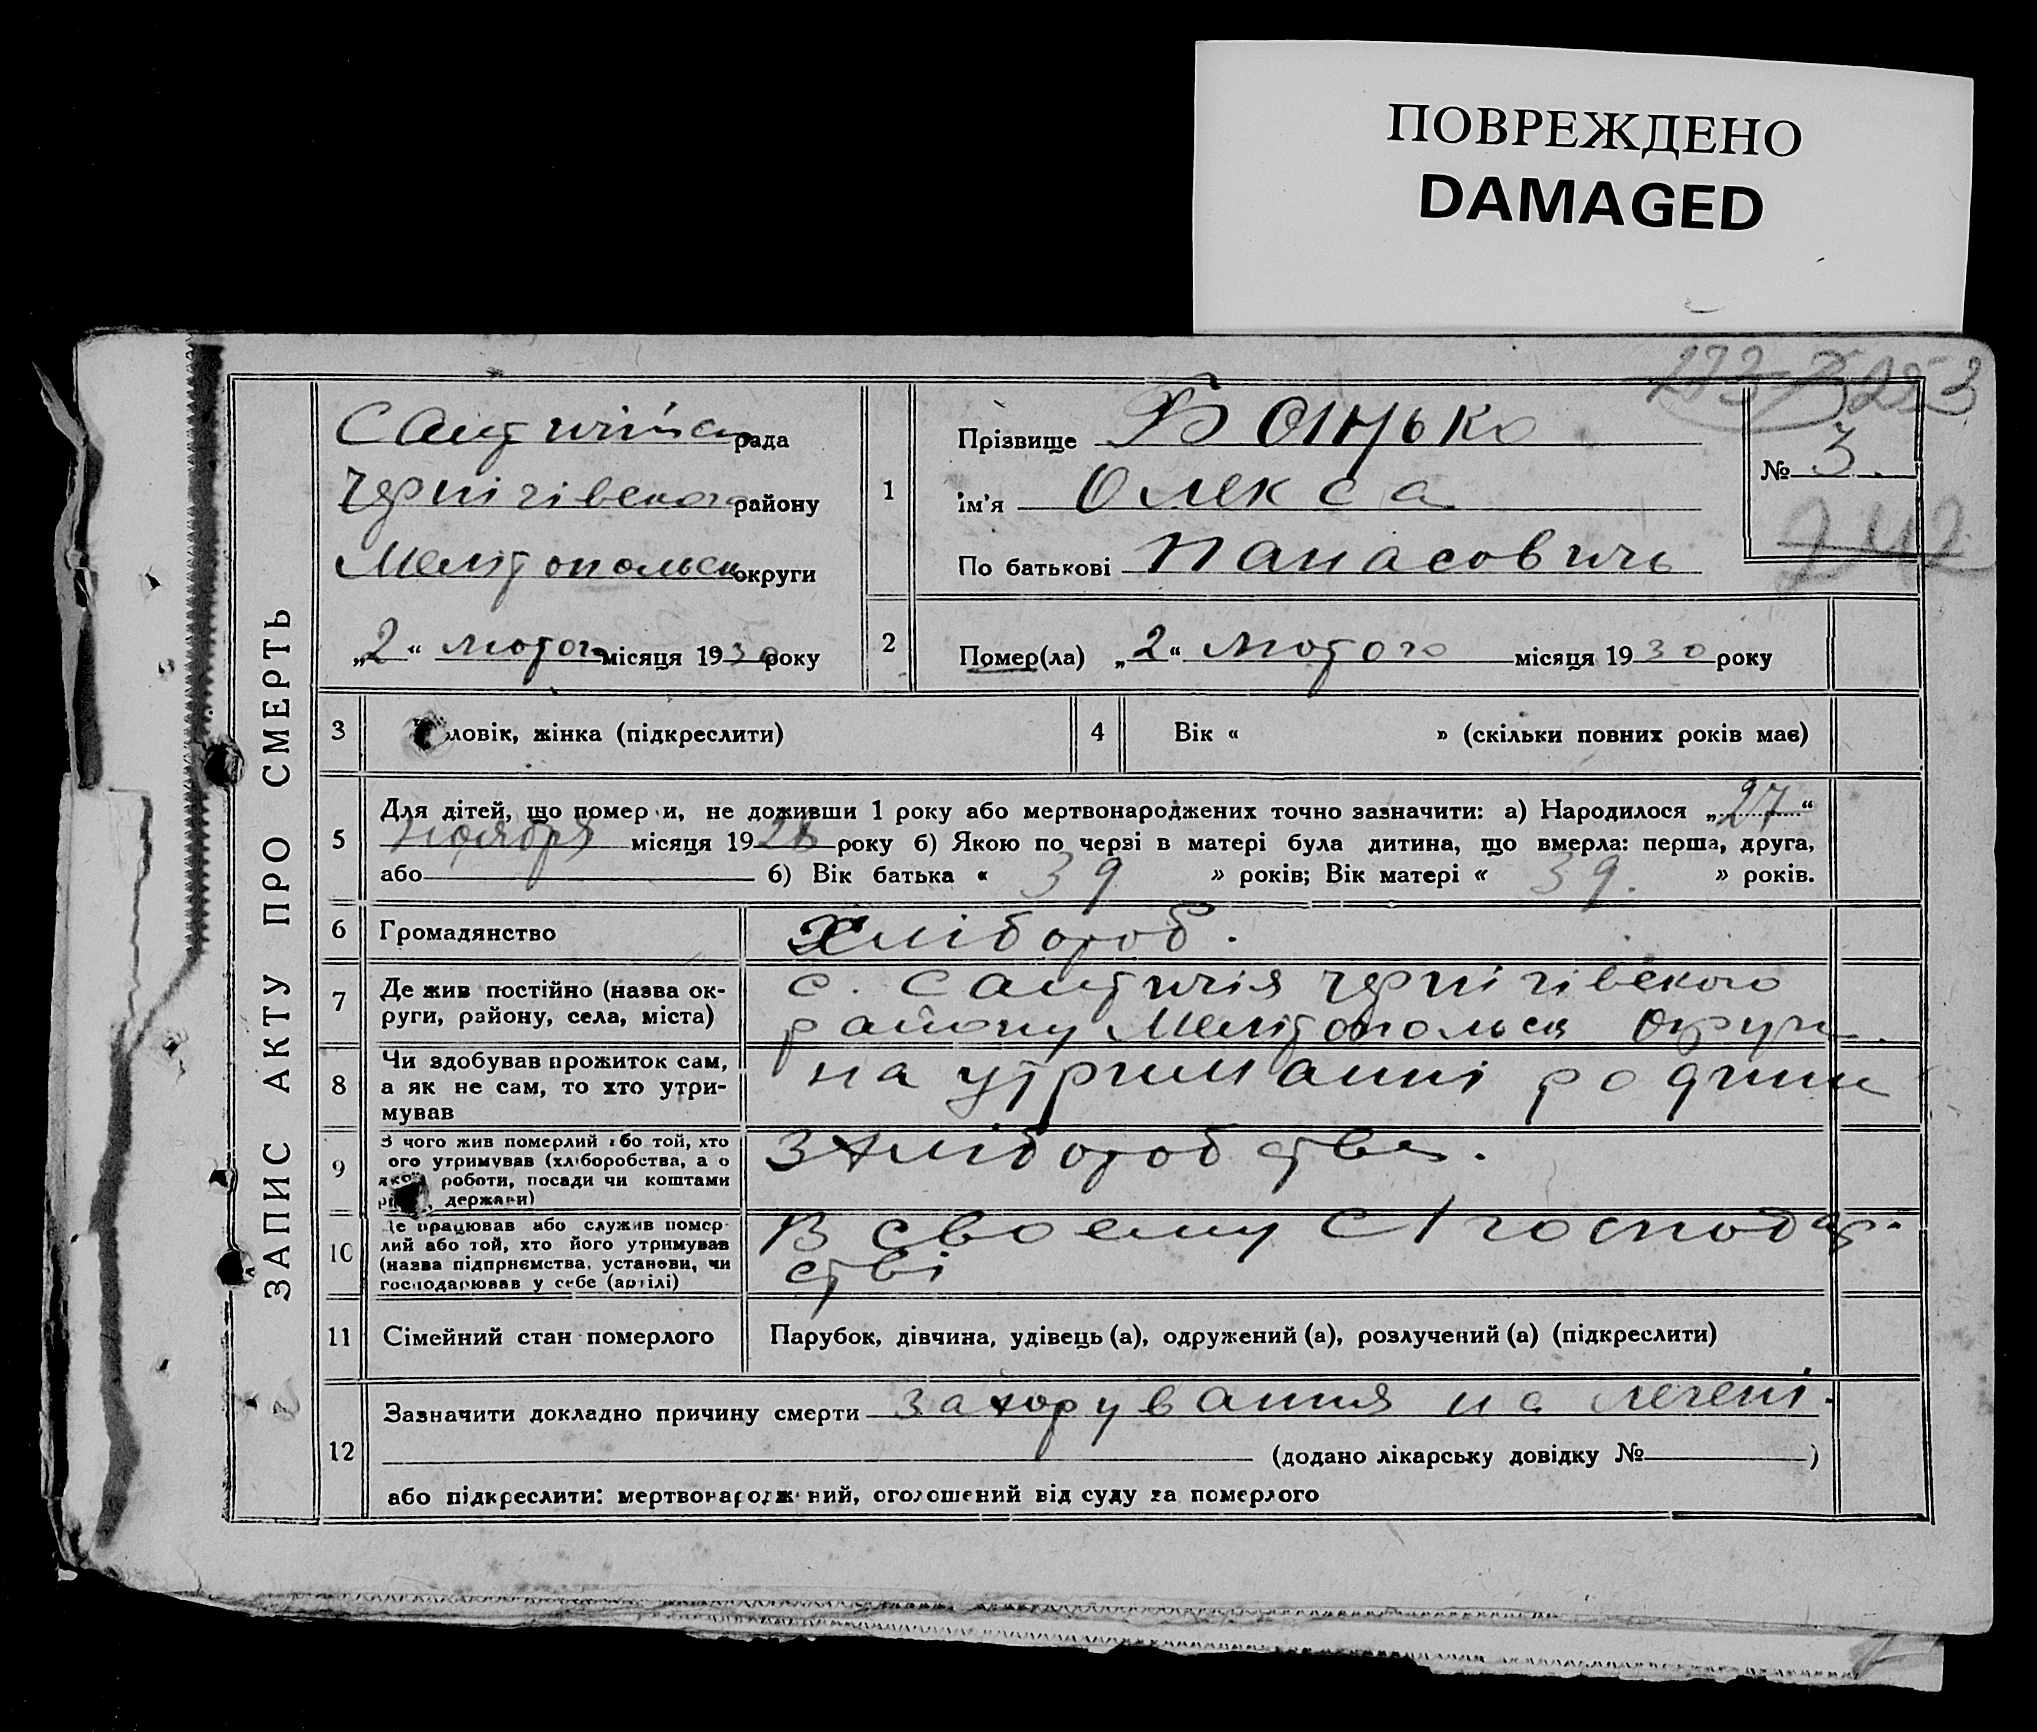 ПОВРЕЖДЕНО
DAMAGED
253
ЗАПИС АКТУ ПРО СМЕРТЬ
рада
Чернігівського району
Мелітопольськ округи
„2“ лютого місяця 1930 року
1
Прізвище Банько
ім'я Олекса
По батькові Панасовичь
№ 3.
242
2
Помер(ла) „2“ лютого місяця 1930 року
3
ловік, жінка (підкреслити)
4
Вік « » (скільки повних років має)
5
Для дітей, що помер и, не доживши 1 року або мертвонароджених точно зазначити: а) Народилося „27“
ноября місяця 1928 року б) Якою по черзі в матері була дитина, що вмерла: перша, друга,
або б) Вік батька « 39 » років; Вік матері « 39. » років.
6
Громадянство
хлібороб.
7
Де жив постійно (назва ок-
руги, району, села, міста)
с. Салтичія Чернігівського
району Мелітопольськ округи.
8
Чи здобував прожиток сам,
а як не сам, то хто утри-
мував
на утриманні родини
9
З чого жив померлий або той, хто
ого утримував (хліборобства, а о
якої роботи, посади чи коштами
, держави)
З хліборобства.
10
Де працював або служив помер-
лий або той, хто його утримував
(назва підприємства, установи, чи
господарював у себе (артілі)
В своему с/господар-
стві
11
Сімейний стан померлого
Парубок, дівчина, удівець (а), одружений (а), розлучений (а) (підкреслити)
12
Зазначити докладно причину смерти захорування на легені.
(додано лікарську довідку № )
або підкреслити: мертвонароджений, оголошений від суду за померлого